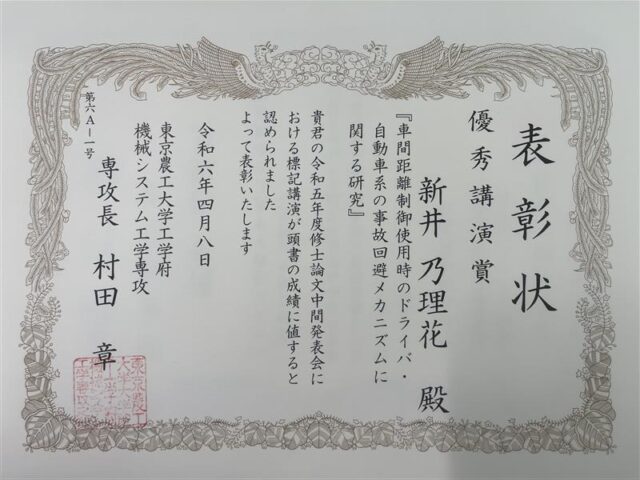 表彰状
優秀講演賞
新井 乃理花 殿
『車間距離制御使用時のドライバ・
自動車系の事故回避メカニズムに
関する研究』
貴君の令和五年度修士論文中間発表会に
おける標記講演が頭書の成績に値すると
認められました
よって表彰いたします
令和六年四月八日
東京農工大学工学府
機械システム工学専攻
専攻長 村田 章
第六A－一号